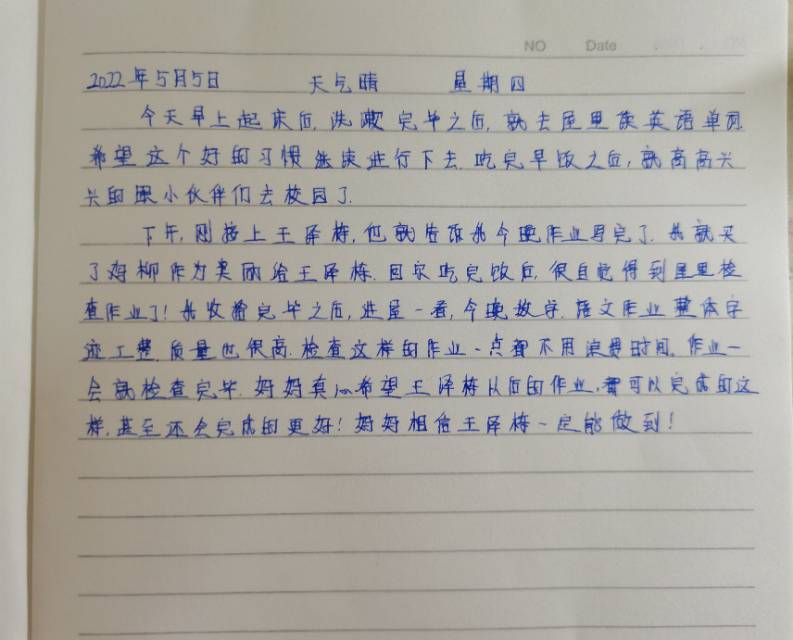 NO Date
2022年5月5日 天气晴 星期四
今天早上起床后,洗漱完毕之后,就去屋里读英语单词
希望这个好的习惯继续进行下去.吃完早饭之后,就高高兴
兴的跟小伙伴们去校园了.
下午,刚接上王泽栋,他就告诉我今晚作业写完了.我就买
了鸡柳作为奖励给王泽栋.回家吃完饭后,很自觉得到屋里检
查作业了!我收拾完毕之后,进屋一看,今晚数学.语文作业整体字
迹工整.质量也很高.检查这样的作业一点都不用浪费时间.作业一
会就检查完毕.妈妈真心希望王泽栋以后的作业,都可以完成的这
样,甚至还会完成的更好!妈妈相信王泽栋一定能做到!